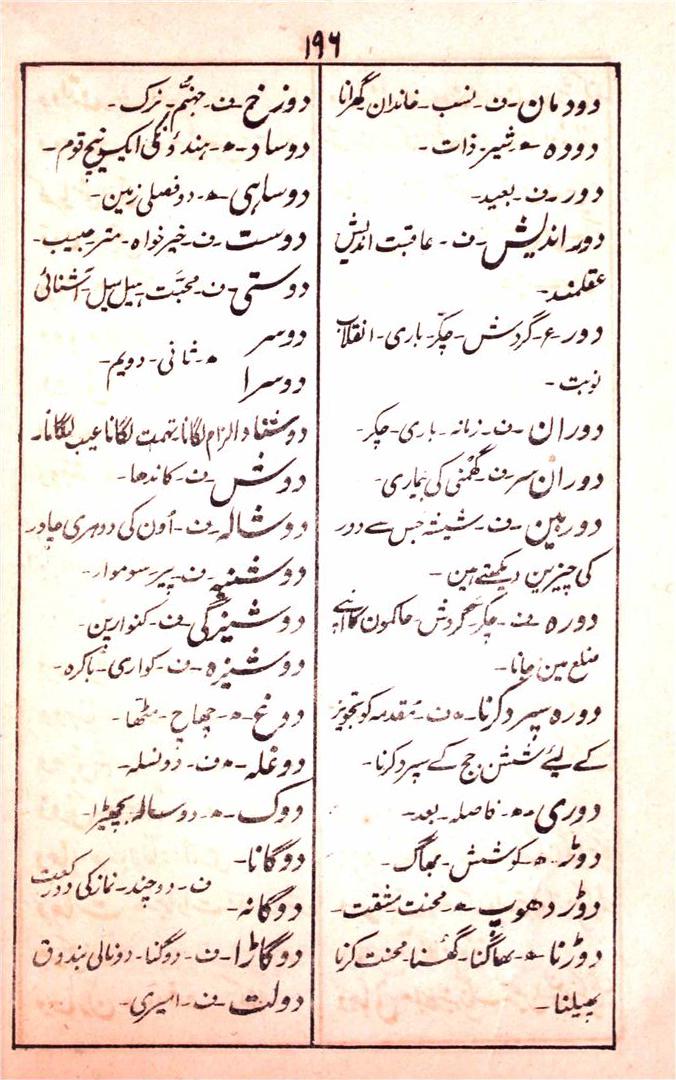 ۱۹۶
دودمان۔ف۔نسب۔خاندان۔گھرانا
دودہ۔ھ۔شیر۔ذات۔
دور۔ف۔بعید۔
دور اندیش۔ف۔عاقبت اندیش
عقلمند۔
دور۔ع۔گردش۔چکّر۔باری۔انقلاب
نوبت۔
دوران۔ف۔زمانہ۔باری۔چکر۔
دوران سر۔ف۔گھُمنی کی بیماری۔
دوربین۔ف۔شیشہ جس سے دور
کی چیزین دیکھتے ہین۔
دورہ۔ف۔چکّر۔گردش۔حاکمون کا اپنے
ضلع مین جانا۔
دورہ سپرد کرنا۔ھ ف۔مقدمہ کو تجویز
کے لیٔے شسشن جج کے سپرد کرنا۔
دوری۔ھ۔فاصلہ۔بعد۔
دوڑ۔ھ۔کوشش۔بھاگ۔
دوڑ دھوپ۔ھ۔محنت۔مشقت۔
دوڑنا۔ھ۔بھاگنا۔گھُسنا۔محنت کرنا
پھیلنا۔
دوزخ۔ف۔جہنّم۔نرک۔
دوساد۔ھ۔ہندؤنکی ایک نیچ قوم۔
دوساہی۔ھ۔دو فصلی زمین۔
دوست۔ف۔خیرخواہ۔متر۔حبیب۔
دوستی۔ف۔محبّت۔میل سیل۔آشنائی
دوسر
ھ۔ثانی۔دویم۔
دوسرا
دوشنا والزام لگانا۔تہمت لگانا عیب لگانا۔
دوش۔ف۔کاندھا۔
دوشالہ۔ف۔اُون کی دوہری چادر
دوشنبہ۔ف۔پیر۔سوموار۔
دوشیزگی۔ف۔کنوارین۔
دوشیزہ۔ف۔کواری۔باکرہ۔
دوغ۔ھ۔چھاچ۔مٹھا۔
دوغلہ۔ھ ف۔دو نسلہ۔
دوک۔ھ۔دو سالہ بچھیڑا۔
دوگانا۔
ف۔دوچند۔نماز کی دو رکعت
دوگانہ۔
دوگاڑا۔ف۔دوگنا۔دونالی بندوق
دولت۔ف۔امیری۔